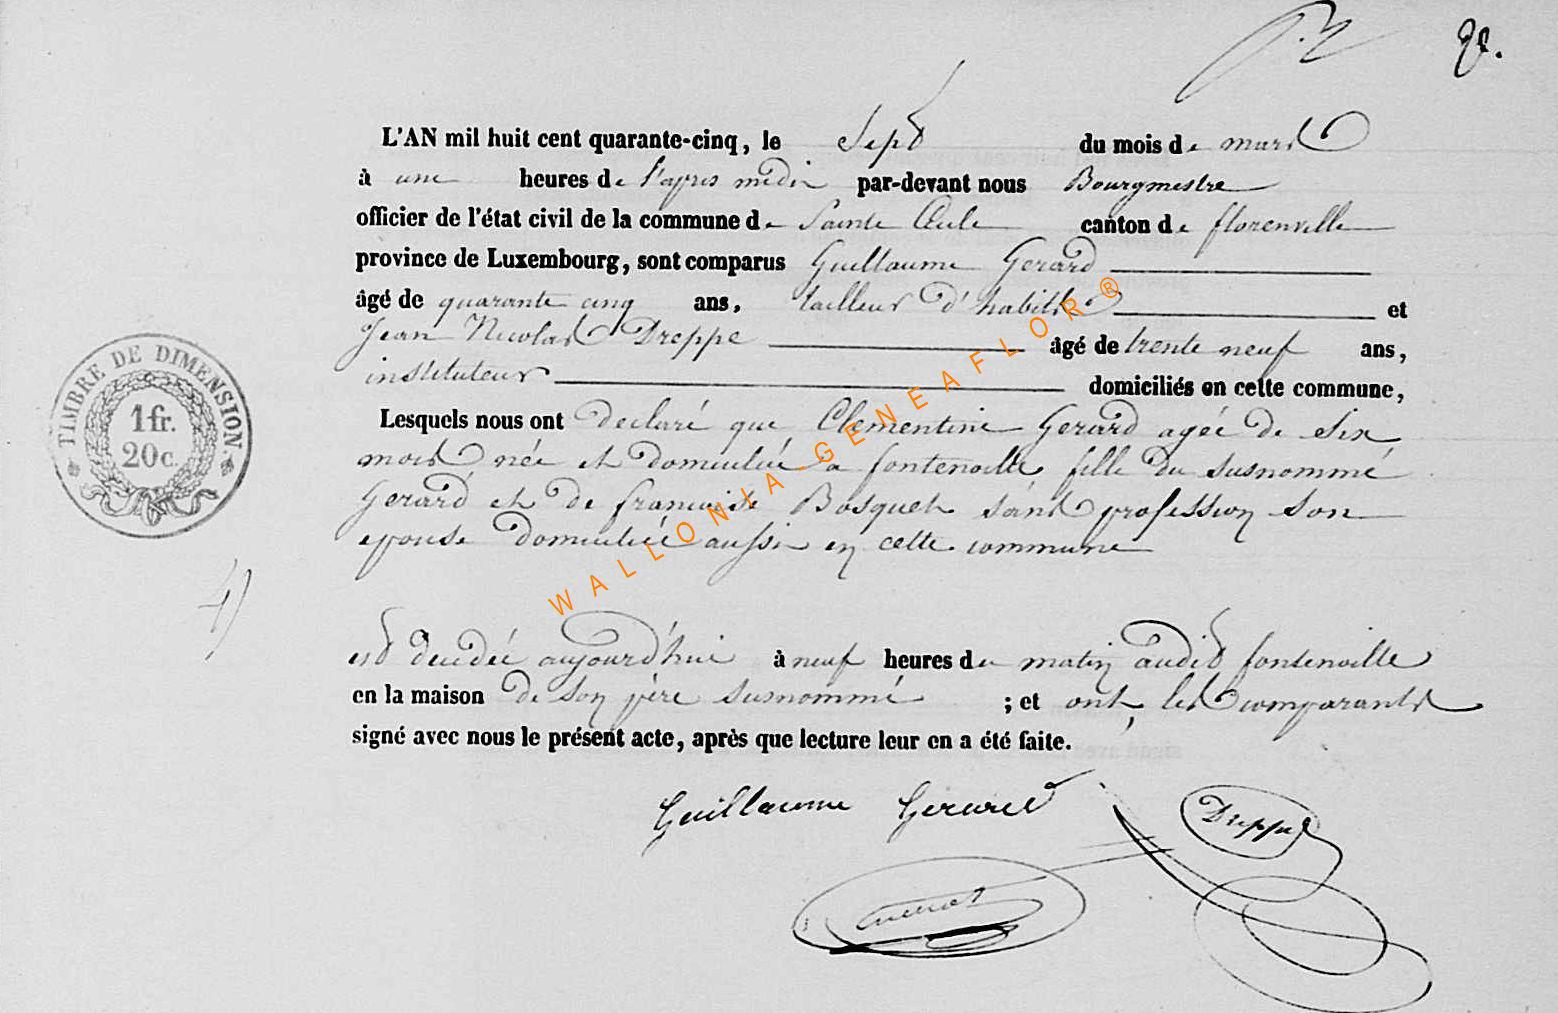 L'AN mil huit cent quarante-cinq, le Sept du mois de mars
à une heures de l'apres midi par-devant nous Bourgmestre
officier de l'état civil de la commune de Sainte Cecile canton de florenville
province de Luxembourg, sont comparus Guillaume Gerard
âgé de quarante cinq ans, tailleur d'habits et
Jean Nicolas Dreppe âgé de trente neuf ans,
instituteur domiciliés en cette commune,
Lesquels nous ont declaré que Clementine Gerard agée de six
mois née et domiciliée a fontenoille fille du susnommé
Gerard et de francoise Bosquet sans profession son
epouse domiciliée aussi en cette commune
est decedée aujourd'hui à neuf heures du matin audit fontenoille
en la maison de son père susnommé ; et ont les comparants
signé avec nous le présent acte, après que lecture leur en a été faite.
Guillaume Gerard Dreppe
TIMBRE DE DIMENSION.
1 fr.
20 c.
WALLONIA-GENEAFLOR®